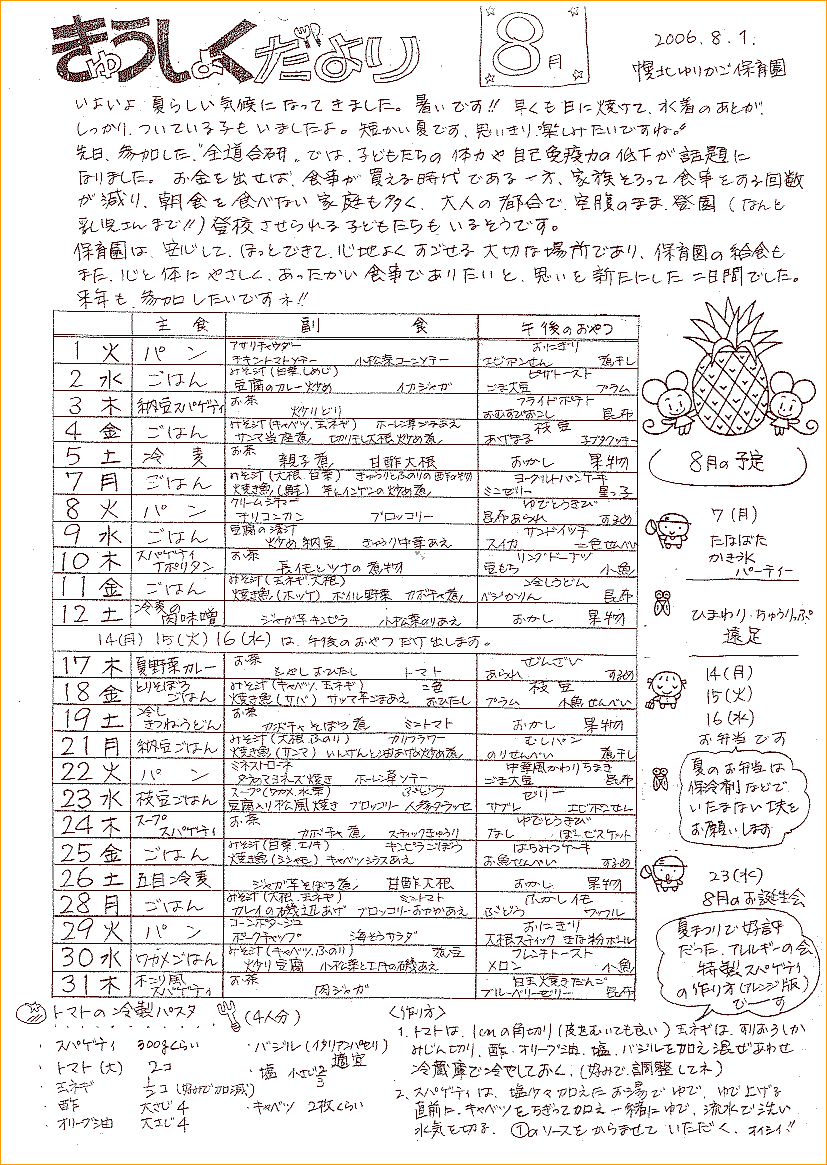 きゅうしょくだより
8月
2006.8.1.
幌北ゆりかご保育園
いよいよ夏らしい気候になってきました。暑いです!! 早くも日に焼けて、水着のあとが、
しっかりついている子もいましたよ。短かい夏です、思いきり楽しみたいですね。
先日、参加した、"全道合研"では、子どもたちの体力や自己免疫力の低下が話題に
なりました。お金を出せば、食事が買える時代である一方、家族そろって食事をする回数
が減り、朝食を食べない家庭も多く、大人の都合で、空腹のまま、登園(なんと
乳児さんまで!!)登校させられる子どもたちもいるそうです。
保育園は、安心して、ほっとできて、心地よくすごせる大切な場所であり、保育園の給食も
また、心と体にやさしく、あったかい食事でありたいと、思いを新たにした二日間でした。
来年も、参加したいですネ!!
主食 副食 午後のおやつ
1 火 パン アサリチャウダー おにぎり
チキントマトソテー 小松菜コーンソテー エビアンせん 煮干し
2 水 ごはん みそ汁(白菜、しめじ) ピザトースト
豆腐のカレー炒め イカジャガ ごま大豆 プラム
3 木 納豆スパゲティ お茶 フライドポテト
炒りどり おむすびおこし 昆布
4 金 ごはん みそ汁(キャベツ、玉ネギ) ホーレン草ごまあえ 枝豆
サンマ当座煮 切り干し大根炒め煮 あげまる
5 土 冷麦 お茶
親子煮 甘酢大根 おかし 果物
7 月 ごはん みそ汁(大根、白菜) きゅうりとふのりの酢の物 ヨーグルトパンケーキ
焼き魚(鮭) 生インゲンの炒め煮 ミニゼリー 星っ子
8 火 パン クリームシチュー ゆでとうきび
チリコンカン ブロッコリー 昆布あられ するめ
9 水 ごはん 豆腐の清汁 サンドイッチ
炒め納豆 きゅうり中華あえ スイカ 二色せんべい
10 木 スパゲティナポリタン お茶 リングドーナツ
長イモとツナの煮物 豆もち 小魚
11 金 ごはん みそ汁(玉ネギ、大根) 冷しうどん
焼き魚(ホッケ) ボイル野菜 カボチャ煮 ベジかりん 昆布
12 土 冷麦の肉味噌
ジャガ芋キンピラ 小松菜のりあえ おかし 果物
14(月) 15(火) 16(水) は、午後のおやつだけ出します。
17 木 夏野菜カレー お茶 ぜんざい
もやしおひたし トマト あられ するめ
18 金 とりそぼろごはん みそ汁(キャベツ、玉ネギ) 二色 枝豆
焼き魚(サバ) サツマ芋ごまあえ おひたし プラム 小魚せんべい
19 土 冷しきつねうどん お茶
カボチャそぼろ煮 ミニトマト おかし 果物
21 月 納豆ごはん みそ汁(大根、ふのり) カリフラワー むしパン
焼き魚(サンマ) いんげんと油あげの炒め煮 のりせんべい 煮干し
22 火 パン ミネストローネ 中華風かわりちまき
タラのマヨネーズ焼き ホーレン草ソテー ごま大豆 昆布
23 水 枝豆ごはん スープ(ワカメ、水菜) ぶどう ゼリー
豆腐入り松風焼き ブロッコリー 人参グラッセ サブレ エビホワせん
24 木 スープスパゲティ お茶 ゆでとうきび
カボチャ煮 スティックきゅうり なし ぱーとビスケット
25 金 ごはん みそ汁(白菜、エノキ) キンピラごぼう はちみつケーキ
焼き魚(シシャモ) キャベツシラスあえ お魚せんべい するめ
26 土 五目冷麦
ジャガ芋そぼろ煮 甘酢大根 おかし 果物
28 月 ごはん みそ汁(大根、玉ネギ) ミニトマト ふかしイモ
カレイの磯辺あげ ブロッコリーおかかあえ ぶどう ワッフル
29 火 パン コーンポタージュ おにぎり
ポークチャップ 海そうサラダ 大根スティック きな粉ボール
30 水 ワカメごはん みそ汁(キャベツ、ふのり) 煮豆 フレンチトースト
炒り豆腐 小松菜とエノキの磯あえ メロン 小魚
31 木 きのこ風スパゲティ お茶 白玉焼きだんご
肉ジャガ ブルーベリーゼリー 昆布
8月の予定
7(月)
たなばた
かき氷
パーティー
ひまわり・ちゅうりっぷ
遠足
14(月)
15(火)
16(水)
お弁当です
夏のお弁当は
保冷剤などで
いたまない工夫を
お願いします
23(水)
8月のお誕生会
夏まつりで好評
だった、アレルギーの会
特製スパゲティ
の作り方(アレンジ版)
でーす
トマトの冷製パスタ (4人分)
・スパゲティ 300gくらい
・トマト(大) 2コ
・玉ネギ 1/2コ(好みで加減)
・酢 大さじ4
・オリーブ油 大さじ4
・バジル(イタリアンパセリ) 適宜
・塩 小さじ2/3
・キャベツ 2枚くらい
〈作り方〉
1. トマトは、1cmの角切り(皮をむいても良い)玉ネギは、すりおろしか
みじん切り、酢・オリーブ油、塩、バジルを加え混ぜあわせ
冷蔵庫で冷やしておく。(好みで、調整してネ)
2. スパゲティは、塩少々加えたお湯でゆで、ゆで上げる
直前に、キャベツをちぎって加え一緒にゆで、流水で洗い
水気を切る。①のソースをからませていただく、オイシイ!!